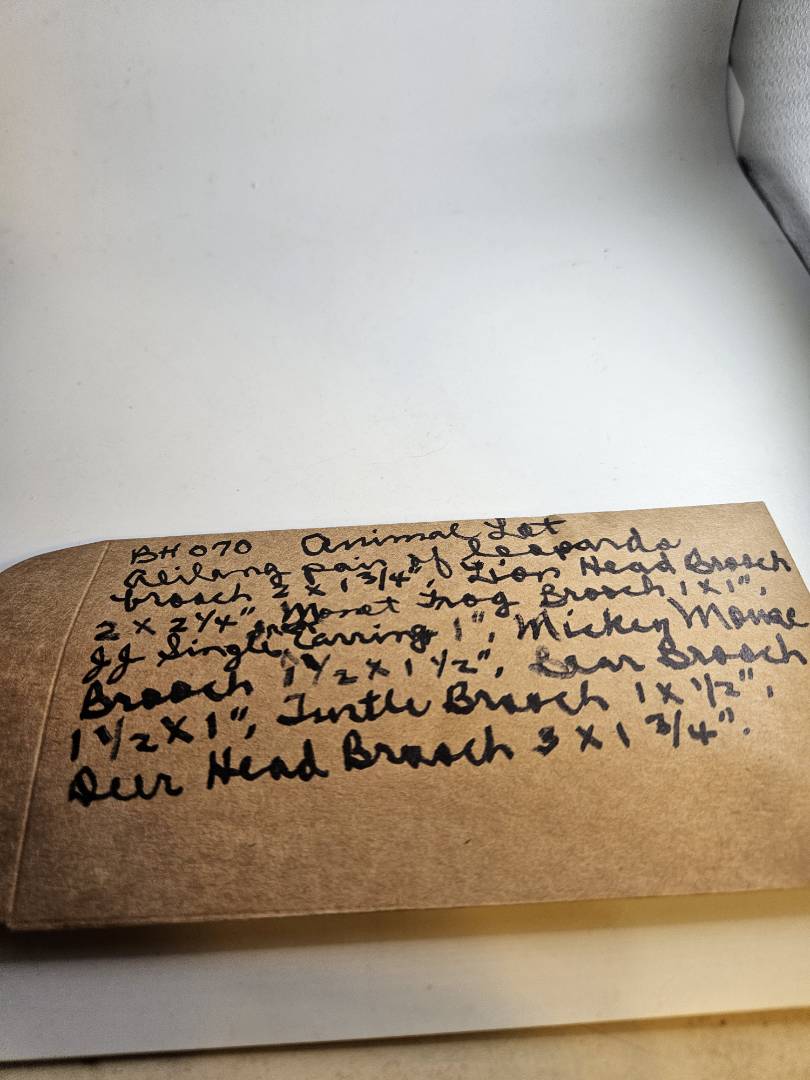 BH 070 Animal Lot
Alilang pair of leopards
brooch 2 x 1 3/4", Lion Head Brooch
2 x 2 1/4", Monet Frog Brooch 1 x 1",
JJ Single Earring 1", Mickey Mouse
Brooch 1 1/2 x 1 1/2", Bear Brooch
1 1/2 x 1", Turtle Brooch 1 x 1/2",
Deer Head Brooch 3 x 1 3/4".